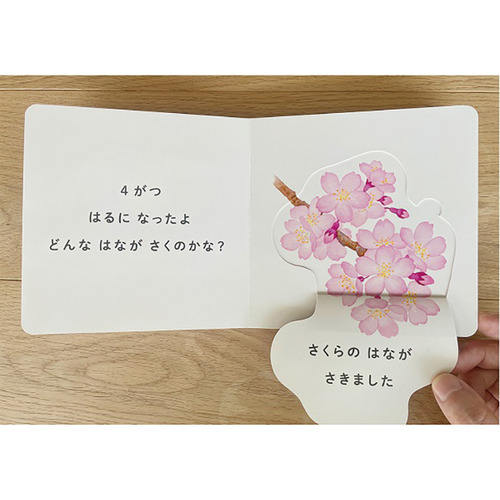 4がつ
はるに なったよ
どんな はなが さくのかな?
さくらの はなが
さきました